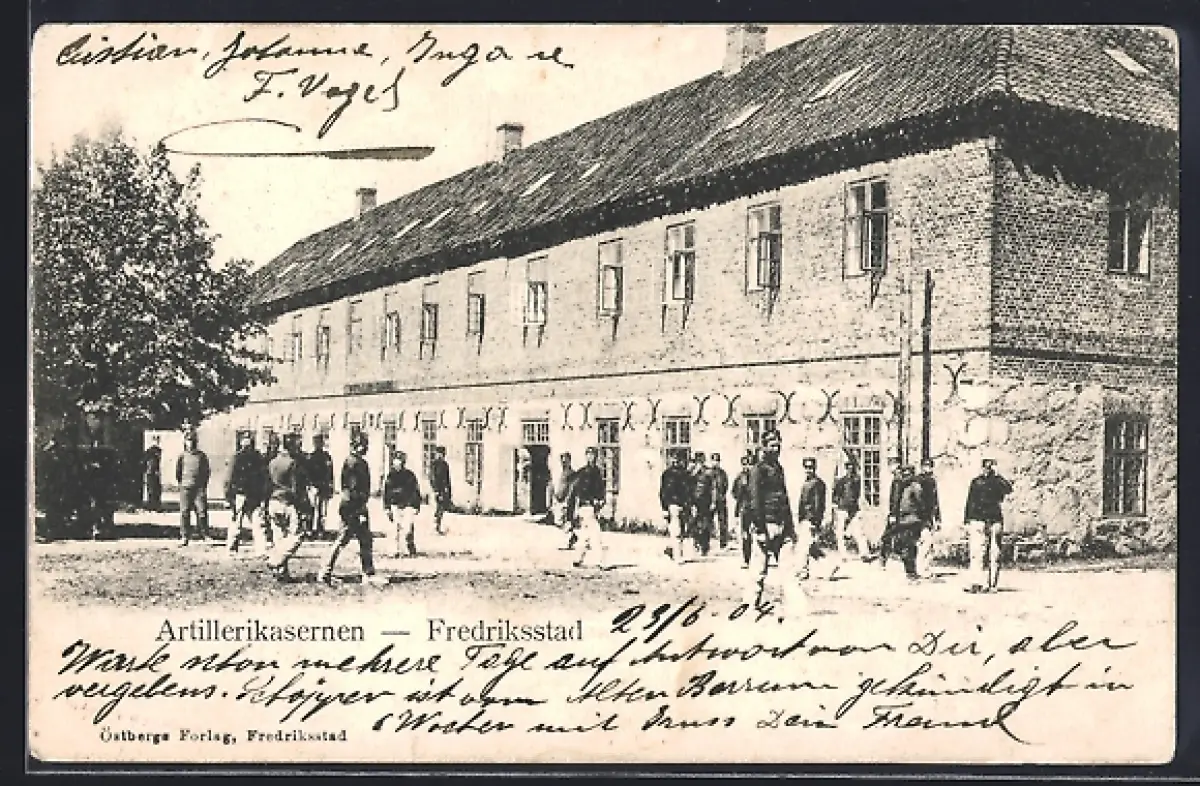 Cristian, Johanne, Inga u
F. Vogel
Artillerikasernen — Fredriksstad 23/6 - 04.
Warte schon mehrere Tage auf Antwort von Dir, aber
vergebens. ist vom Alten gekündigt in
6 Wochen mit Gruss Dein Freund
Östbergs Forlag, Fredriksstad